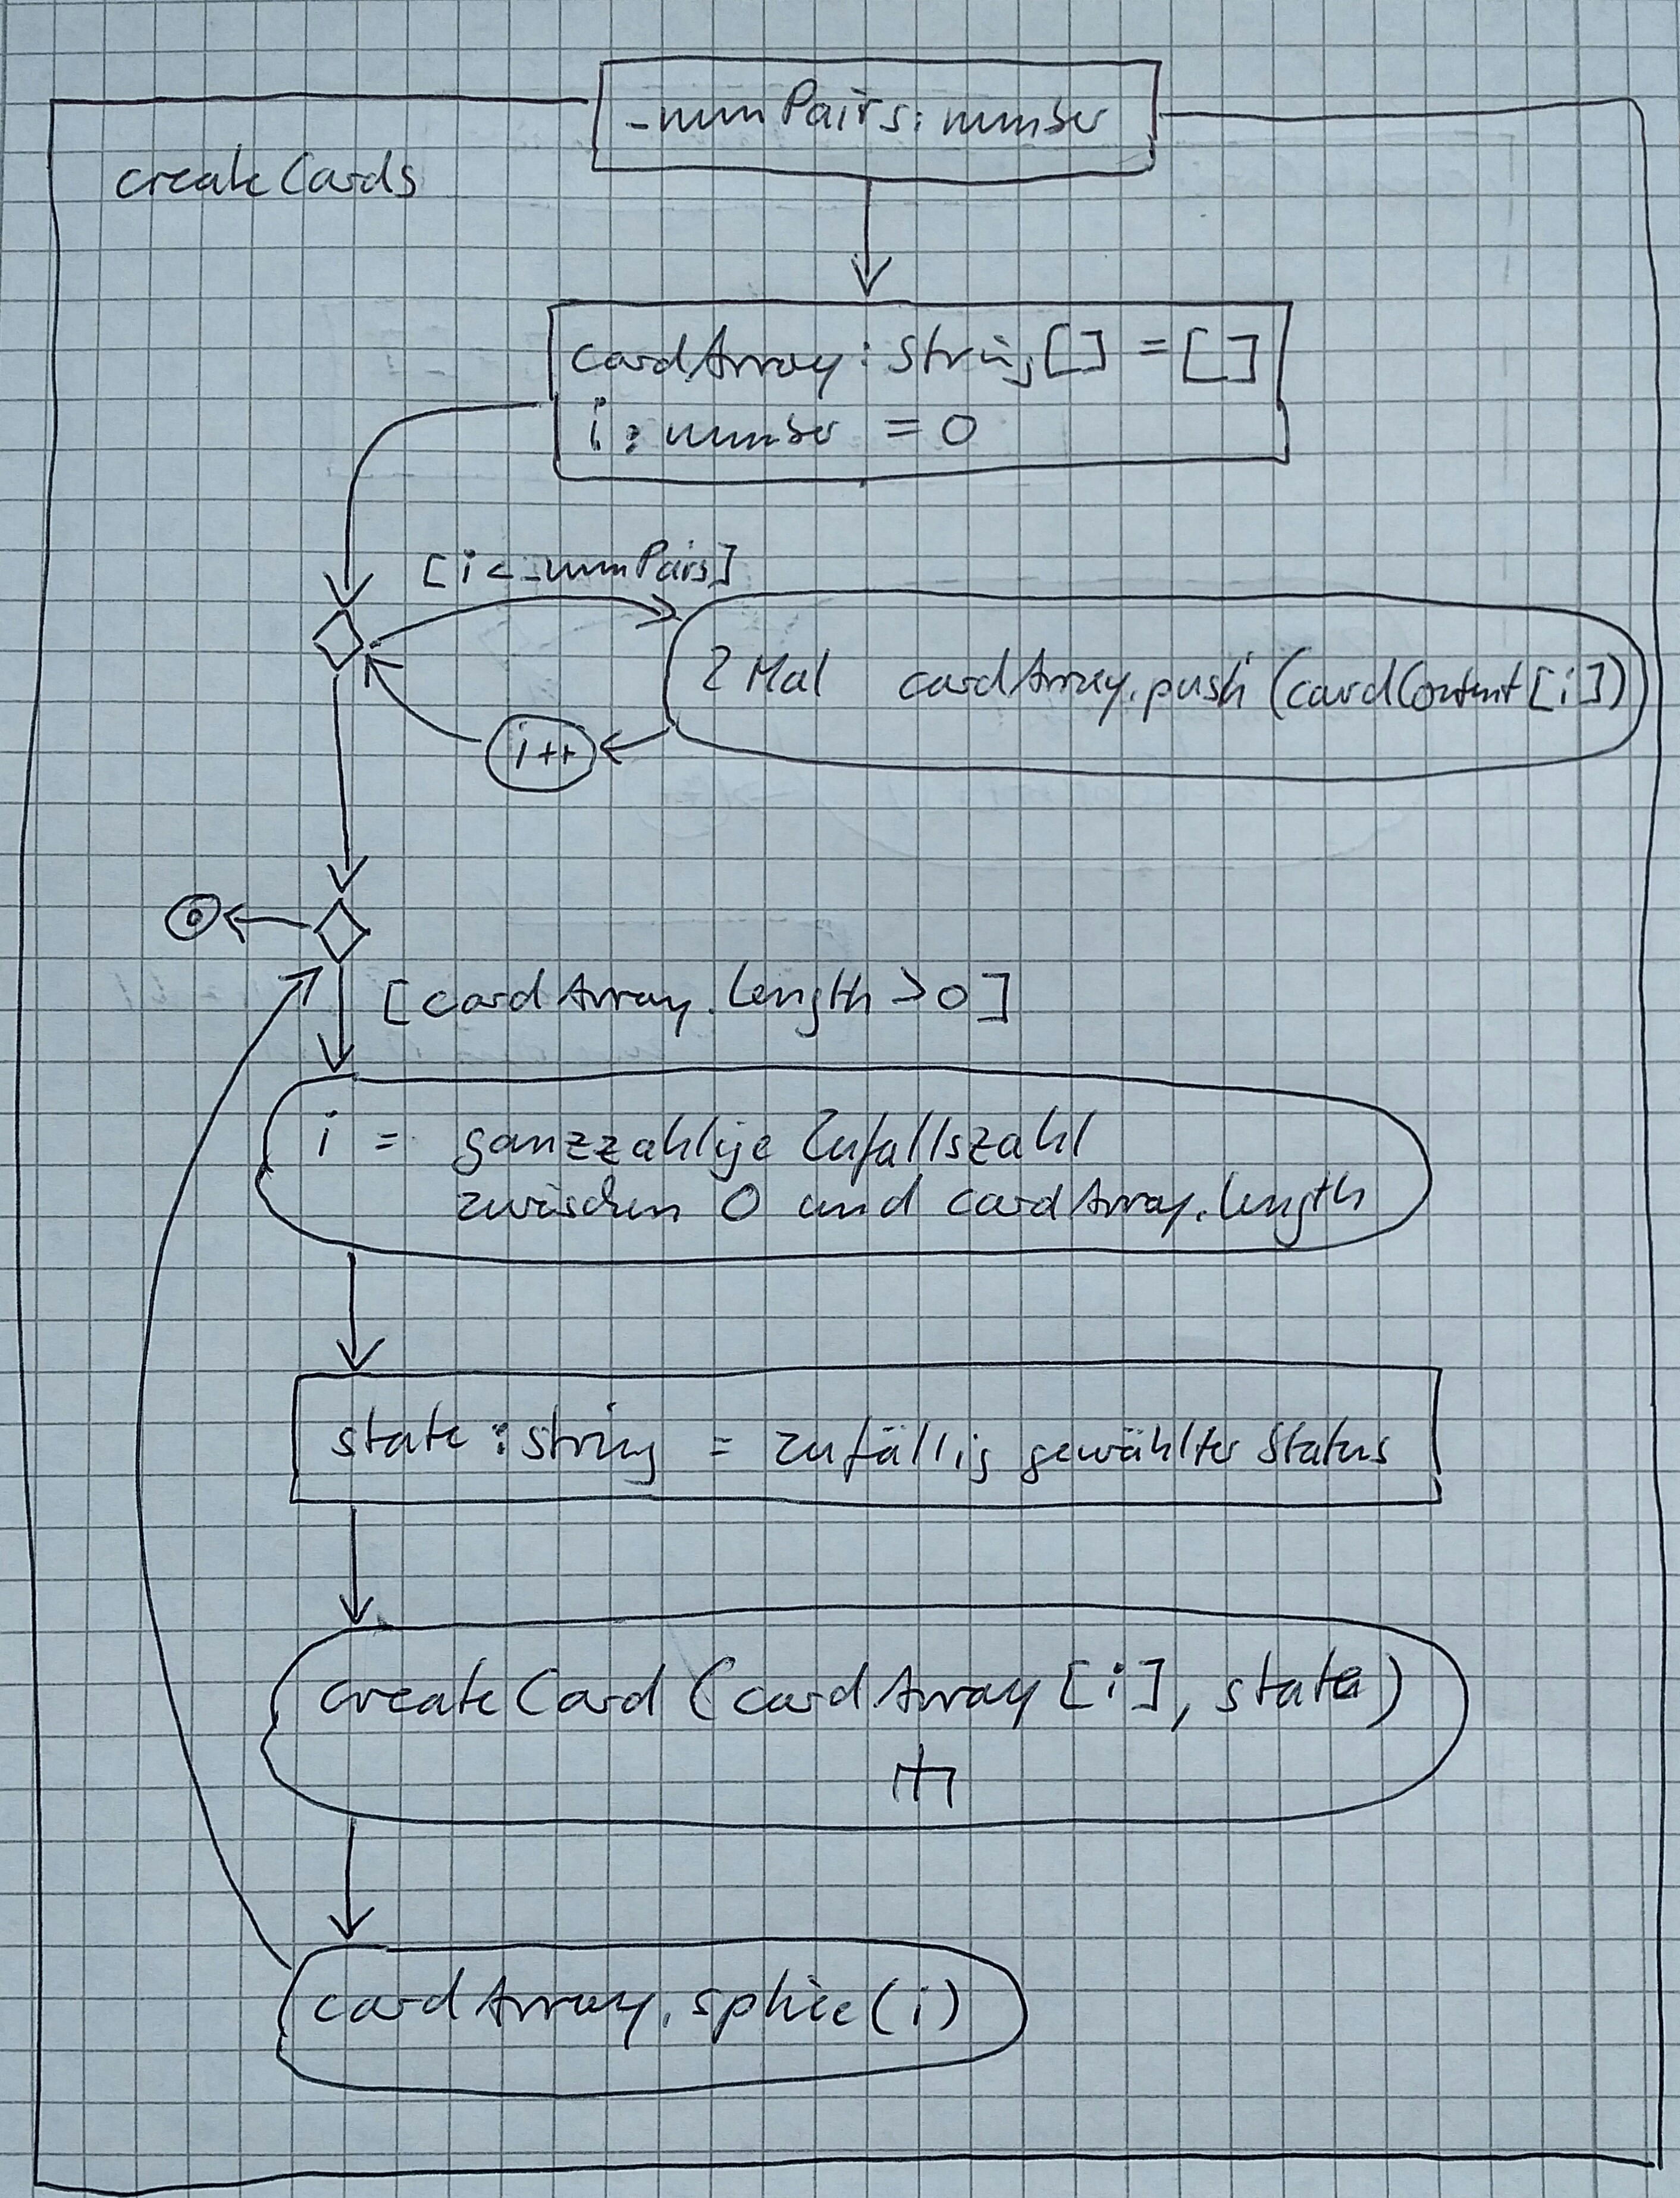 _numPairs: number
createCards
cardArray: string[] = []
i: number = 0
[i < _numPairs]
2 Mal cardArray.push(cardContent[i])
i++
[cardArray.length > 0]
i = ganzzahlige Zufallszahl
zwischen 0 und cardArray.length
state: string = zufällig gewählter Status
createCard(cardArray[i], state)
cardArray.splice(i)